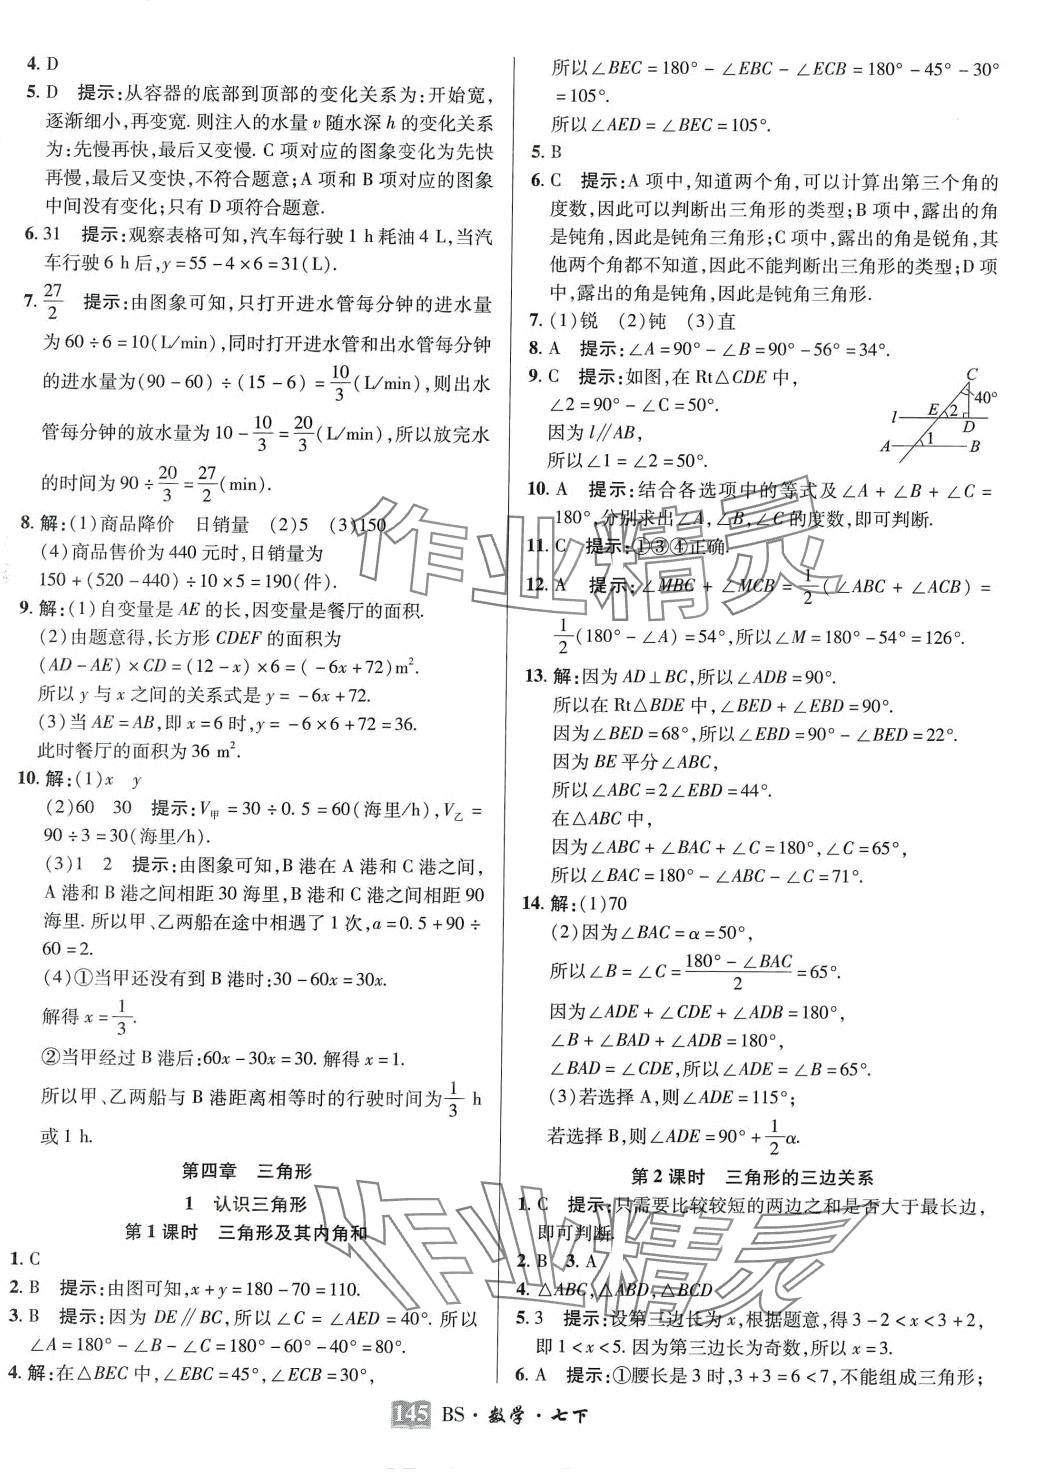 4. D
5. D 提示:从容器的底部到顶部的变化关系为:开始宽,
逐渐细小,再变宽. 则注入的水量 v 随水深 h 的变化关系
为:先慢再快,最后又变慢. C 项对应的图象变化为先快
再慢,最后又变快,不符合题意;A 项和 B 项对应的图象
中间没有变化;只有 D 项符合题意.
6. 31 提示:观察表格可知,汽车每行驶 1 h 耗油 4 L,当汽
车行驶 6 h 后,y=55-4×6=31(L).
7. 27/2 提示:由图象可知,只打开进水管每分钟的进水量
为 60÷6=10(L/min),同时打开进水管和出水管每分钟
的进水量为(90-60)÷(15-6)=10/3(L/min),则出水
管每分钟的放水量为 10-10/3=20/3(L/min),所以放完水
的时间为 90÷20/3=27/2(min).
8. 解:(1)商品降价 日销量 (2)5 (3)150
(4)商品售价为 440 元时,日销量为
150+(520-440)÷10×5=190(件).
9. 解:(1)自变量是 AE 的长,因变量是餐厅的面积.
(2)由题意得,长方形 CDEF 的面积为
(AD-AE)×CD=(12-x)×6=(-6x+72)m².
所以 y 与 x 之间的关系式是 y=-6x+72.
(3)当 AE=AB,即 x=6 时,y=-6×6+72=36.
此时餐厅的面积为 36 m².
10. 解:(1)x y
(2)60 30 提示:V甲=30÷0.5=60(海里/h),V乙=
90÷3=30(海里/h).
(3)1 2 提示:由图象可知,B 港在 A 港和 C 港之间,
A 港和 B 港之间相距 30 海里,B 港和 C 港之间相距 90
海里. 所以甲、乙两船在途中相遇了 1 次,a=0.5+90÷
60=2.
(4)①当甲还没有到 B 港时:30-60x=30x.
解得 x=1/3.
②当甲经过 B 港后:60x-30x=30. 解得 x=1.
所以甲、乙两船与 B 港距离相等时的行驶时间为 1/3 h
或 1 h.
第四章 三角形
1 认识三角形
第 1 课时 三角形及其内角和
1. C
2. B 提示:由图可知,x+y=180-70=110.
3. B 提示:因为 DE∥BC,所以∠C=∠AED=40°. 所以
∠A=180°-∠B-∠C=180°-60°-40°=80°.
4. 解:在△BEC 中,∠EBC=45°,∠ECB=30°,
所以∠BEC=180°-∠EBC-∠ECB=180°-45°-30°
=105°.
所以∠AED=∠BEC=105°.
5. B
6. C 提示:A 项中,知道两个角,可以计算出第三个角的
度数,因此可以判断出三角形的类型;B 项中,露出的角
是钝角,因此是钝角三角形;C 项中,露出的角是锐角,其
他两个角都不知道,因此不能判断出三角形的类型;D 项
中,露出的角是钝角,因此是钝角三角形.
7. (1)锐 (2)钝 (3)直
8. A 提示:∠A=90°-∠B=90°-56°=34°.
9. C 提示:如图,在 Rt△CDE 中,
∠2=90°-∠C=50°.
因为 l∥AB,
所以∠1=∠2=50°.
C
40°
E 2
l D
A 1 B
10. A 提示:结合各选项中的等式及∠A+∠B+∠C=
180°,分别求出∠A,∠B,∠C 的度数,即可判断.
11. C 提示:①③④正确.
12. A 提示:∠MBC+∠MCB=1/2(∠ABC+∠ACB)=
1/2(180°-∠A)=54°,所以∠M=180°-54°=126°.
13. 解:因为 AD⊥BC,所以∠ADB=90°.
所以在 Rt△BDE 中,∠BED+∠EBD=90°.
因为∠BED=68°,所以∠EBD=90°-∠BED=22°.
因为 BE 平分∠ABC,
所以∠ABC=2∠EBD=44°.
在△ABC 中,
因为∠ABC+∠BAC+∠C=180°,∠C=65°,
所以∠BAC=180°-∠ABC-∠C=71°.
14. 解:(1)70
(2)因为∠BAC=α=50°,
所以∠B=∠C=(180°-∠BAC)/2=65°.
因为∠ADE+∠CDE+∠ADB=180°,
∠B+∠BAD+∠ADB=180°,
∠BAD=∠CDE,所以∠ADE=∠B=65°.
(3)若选择 A,则∠ADE=115°;
若选择 B,则∠ADE=90°+1/2α.
第 2 课时 三角形的三边关系
1. C 提示:只需要比较较短的两边之和是否大于最长边,
即可判断.
2. B 3. A
4. △ABC,△ABD,△BCD
5. 3 提示:设第三边长为 x,根据题意,得 3-2<x<3+2,
即 1<x<5. 因为第三边长为奇数,所以 x=3.
6. A 提示:①腰长是 3 时,3+3=6<7,不能组成三角形;
145 BS·数学·七下
作业精灵
作业精灵